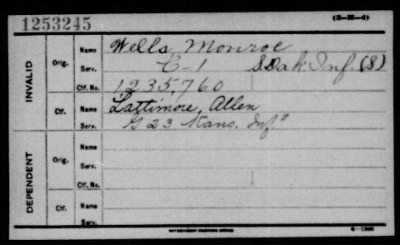 1253245
(3-35-4)
INVALID
Orig.
Name Wells, Monroe
Serv. C-1 S Dak. Inf. (S)
Ctf. No. 1,235,760
Ctf.
Name Lattimore, Allen
Serv. G 23 Kans. Inf
DEPENDENT
Orig.
Name
Serv.
Ctf. No.
Ctf.
Name
Serv.